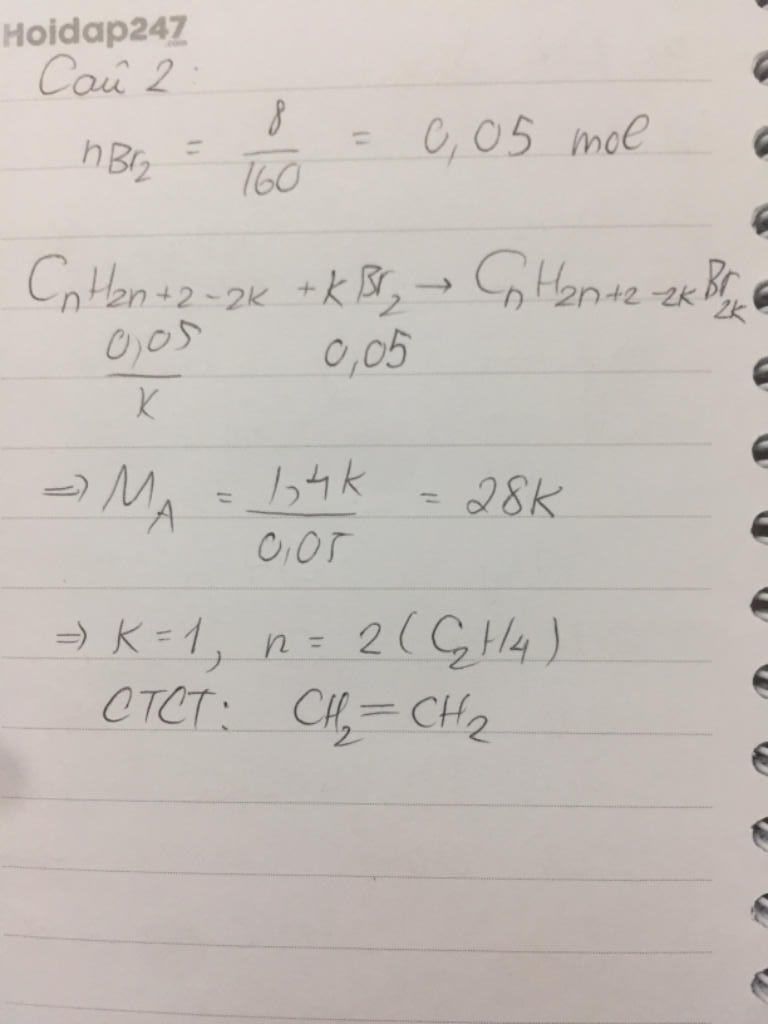 Hoidap247
.com
Câu 2:
nBr₂ = 8/160 = 0,05 mol
CnH2n+2-2k + kBr₂ → CnH2n+2-2kBr2k
0,05/k 0,05
=> MA = 1,4k/0,05 = 28k
=> k=1, n = 2 (C₂H₄)
CTCT: CH₂=CH₂